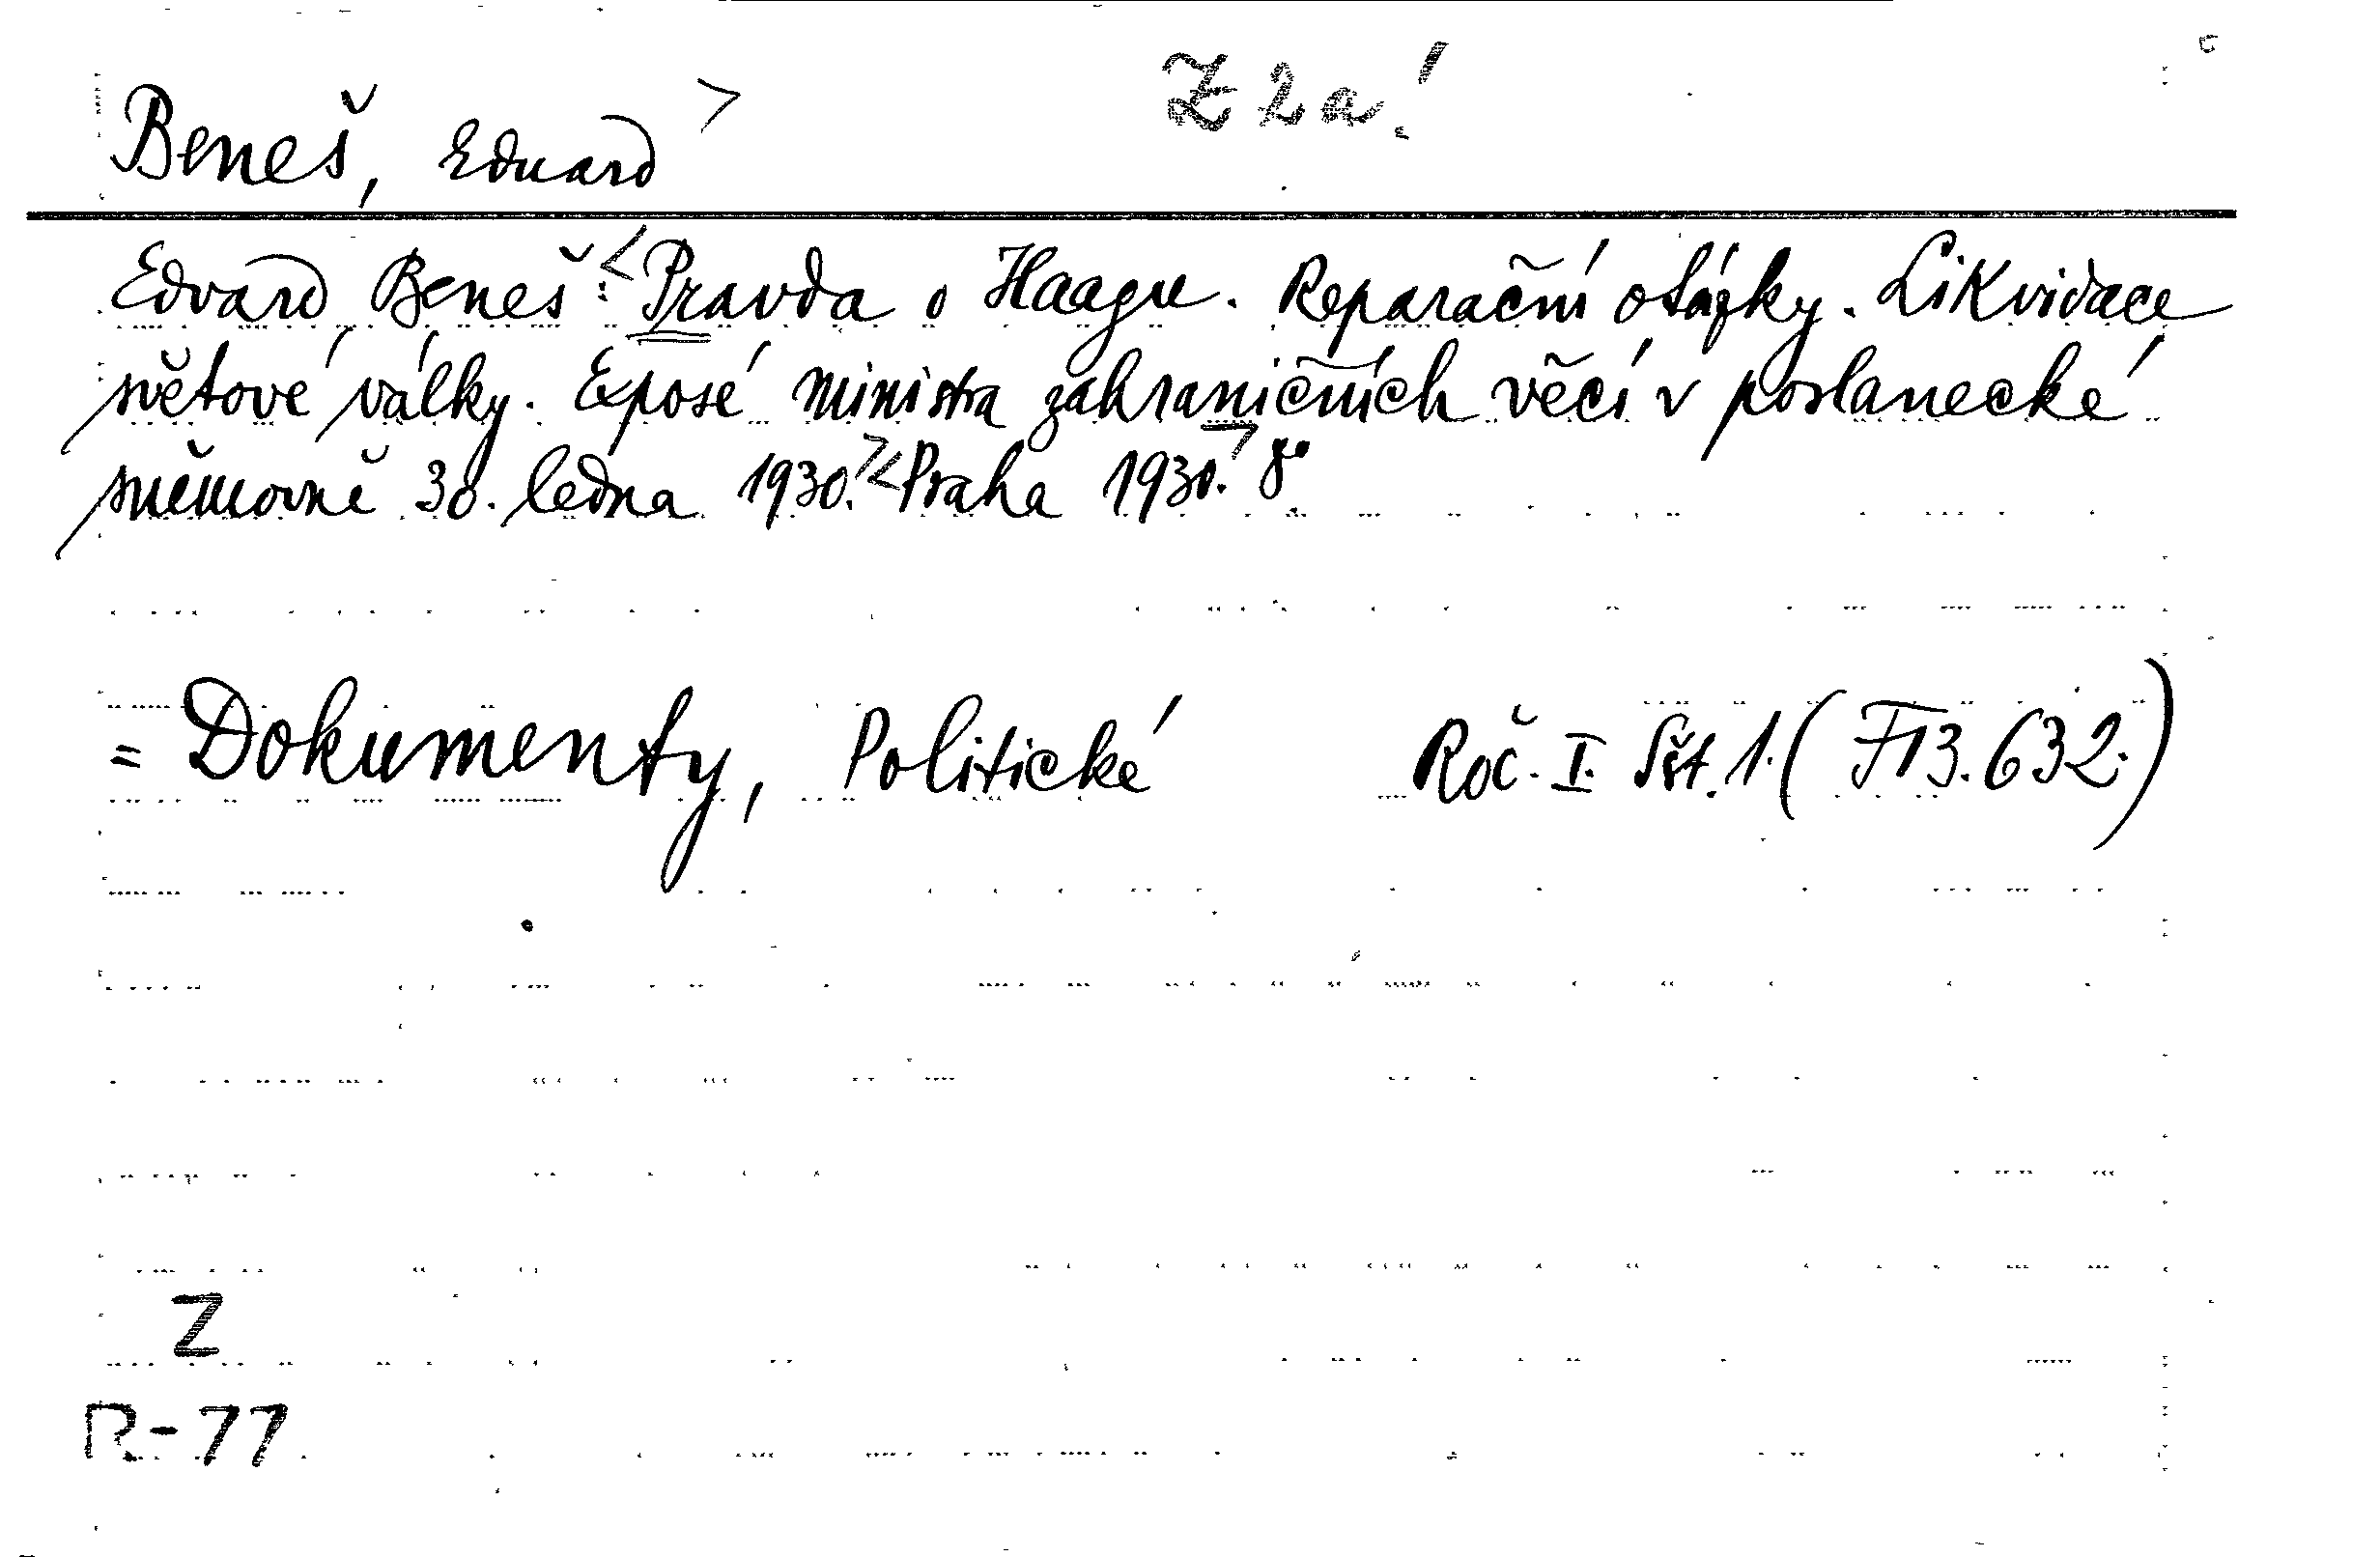 Beneš, Eduard > Z 2a!
Edvard Beneš:< Pravda o Haagu. Reparační otázky. Likvidace
světové války. Exposé ministra zahraničních věcí v poslanecké
sněmovně 30. ledna 1930.>< Praha 1930.> 8°.
= Dokumenty, Politické Roč. I. Sšt. 1. (F13.632.)
Z
R-77